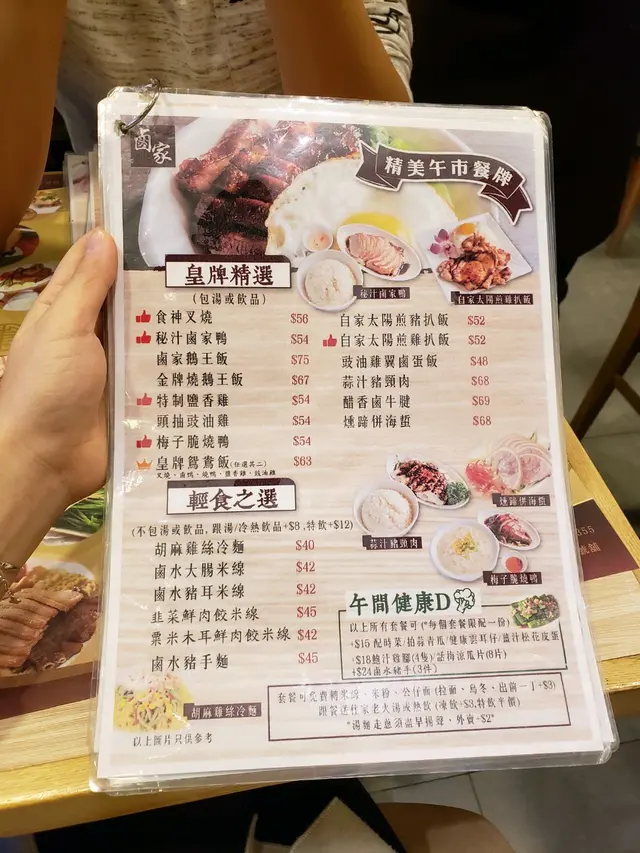 鹵家
精美午市餐牌
秘汁鹵家鴨
自家太陽煎雞扒飯
皇牌精選
(包湯或飲品)
食神叉燒 $56
秘汁鹵家鴨 $54
鹵家鵝王飯 $75
金牌燒鵝王飯 $67
特制鹽香雞 $54
頭抽豉油雞 $54
梅子脆燒鴨 $54
皇牌鴛鴦飯(任選其二) $63
叉燒、鹵鴨、燒鴨、鹽香雞、豉油雞
自家太陽煎豬扒飯 $52
自家太陽煎雞扒飯 $52
豉油雞翼鹵蛋飯 $48
蒜汁豬頸肉 $68
醋香鹵牛腱 $69
燻蹄併海蜇 $68
輕食之選
(不包湯或飲品, 跟湯/冷熱飲品+$8 ,特飲+$12)
胡麻雞絲冷麵 $40
鹵水大腸米線 $42
鹵水豬耳米線 $42
韭菜鮮肉餃米線 $45
粟米木耳鮮肉餃米線 $42
鹵水豬手麵 $45
蒜汁豬頸肉
燻蹄併海蜇
梅子脆燒鴨
午間健康D
以上所有套餐可 (*每個套餐限配一份)
+$15 配時菜/拍蒜青瓜/健康雲耳仔/薑汁松花皮蛋
+$18鮑汁雞腳(4隻)/話梅涼瓜片(8片)
+$24鹵水豬手(3件)
胡麻雞絲冷麵
以上圖片只供參考
套餐可免費轉米線、米粉、公仔面 (拉面、烏冬、出前一丁+$3)
跟餐送住家老火湯或熱飲 (凍飲+$3,特飲半價)
*湯麵走蔥須盡早揚聲, 外賣+$2*